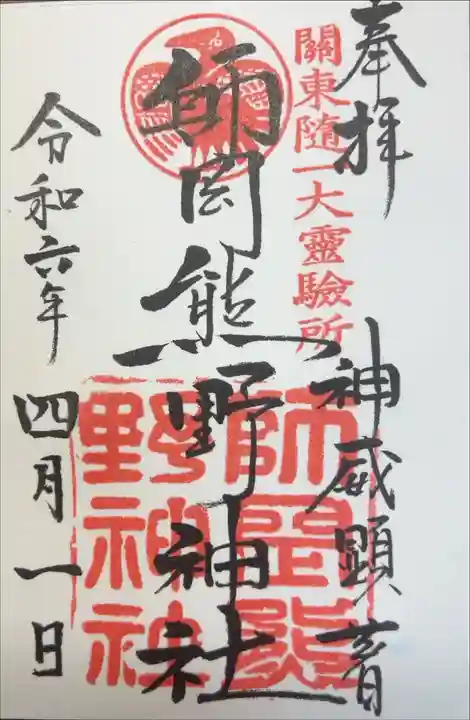 奉拝
神威顕著
關東隨一大靈驗所
師岡熊野神社
師岡熊
野神社
令和六年
四月一日